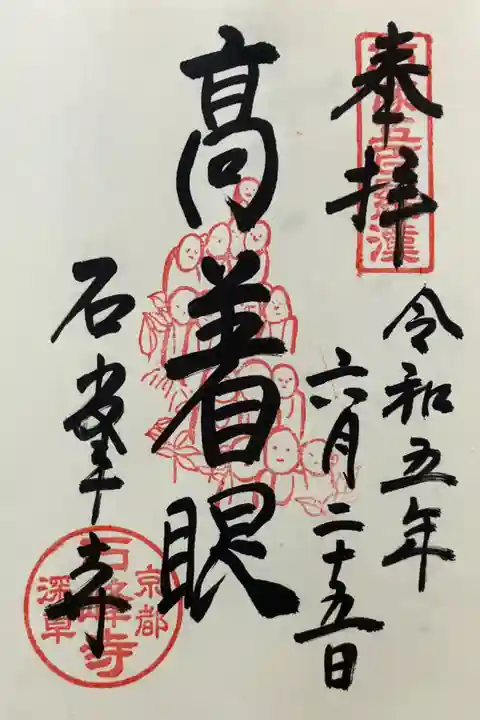 奉拝
令和五年
六月二十五日
高着眼
石峯寺
五百羅漢
京都
深草
石峰寺